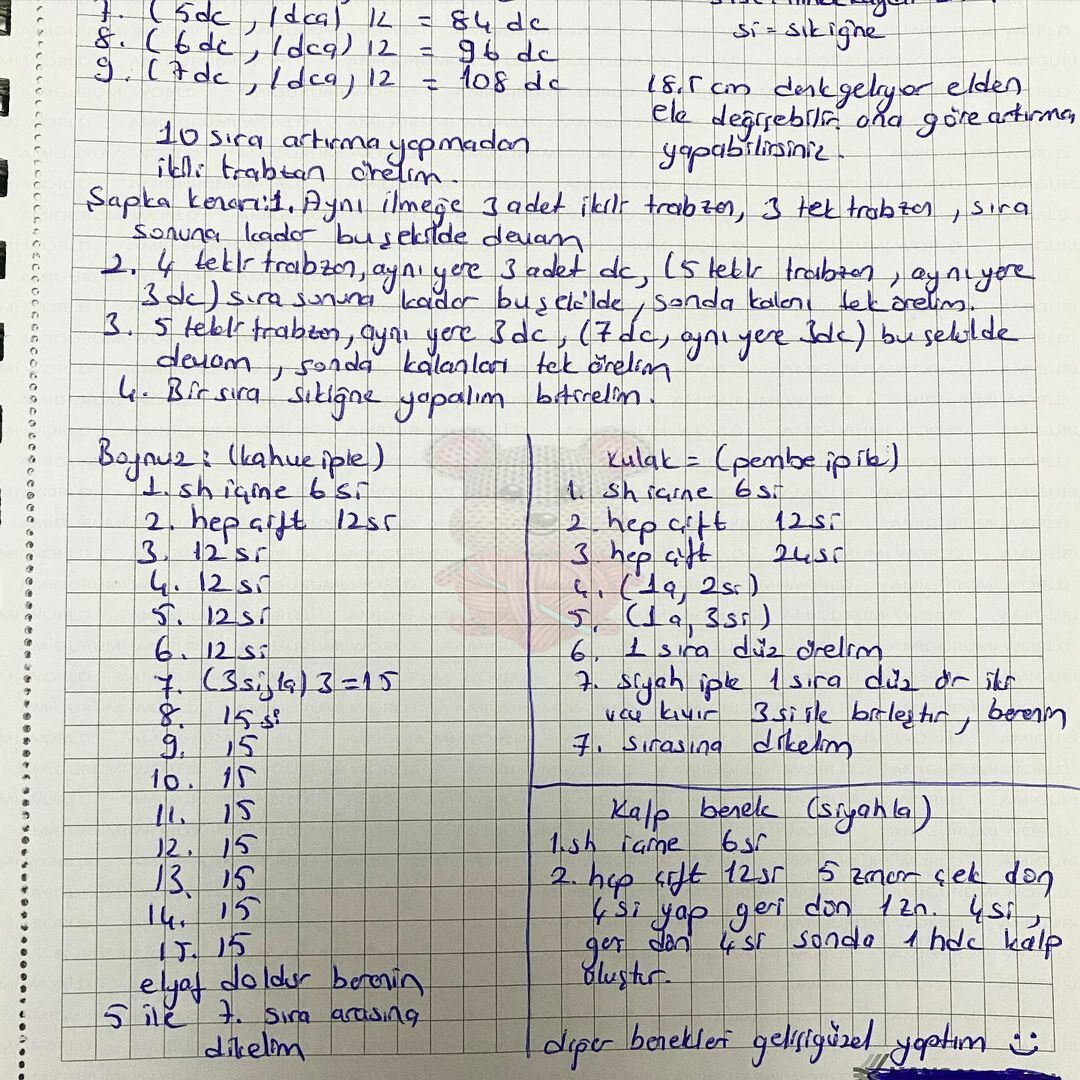 7. (5dc, 1dca) 12 = 84 dc
8. (6dc, 1dca) 12 = 96 dc
9. (7dc, 1dca) 12 = 108 dc
si = sık iğne
18,5 cm denk geliyor elden
ele değişebilir, ona göre artırma
yapabilirsiniz.
10 sıra artırma yapmadan
ikili trabzan örelim.
Şapka kenarı: 1. Aynı ilmeğe 3 adet ikili trabzan, 3 tek trabzan, sıra
sonuna kadar bu şekilde devam
2. 4 tekli trabzan, aynı yere 3 adet dc, (5 tekli trabzan, aynı yere
3dc) sıra sonuna kadar bu şekilde, sonda kalanı tek örelim.
3. 5 tekli trabzan, aynı yere 3dc, (7dc, aynı yere 3dc) bu şekilde
devam, sonda kalanları tek örelim
4. Bir sıra sık iğne yapalım bitirelim.
Boynuz: (kahve iple)
1. sh içine 6 si
2. hep çift 12si
3. 12 si
4. 12 si
5. 12si
6. 12si
7. (3si, 1a) 3 = 15
8. 15 si
9. 15
10. 15
11. 15
12. 15
13. 15
14. 15
15. 15
elyaf doldur berenin
5 ile 7. sıra arasına
dikelim
Kulak = (pembe iple)
1. sh içine 6si
2. hep çift 12si
3. hep çift 24si
4. (1a, 2si)
5. (1a, 3si)
6. 1 sıra düz örelim
7. siyah iple 1 sıra düz ör iki
ucu kıvır 3si ile birleştir, berenin
7. sırasına dikelim
Kalp benek (siyahla)
1. sh içine 6si
2. hep çift 12si 5 zincir çek dön
4si yap geri dön 1zn. 4si,
geri dön 4si sonda 1 hdc kalp
oluştur.
diğer benekleri gelişigüzel yaptım :)